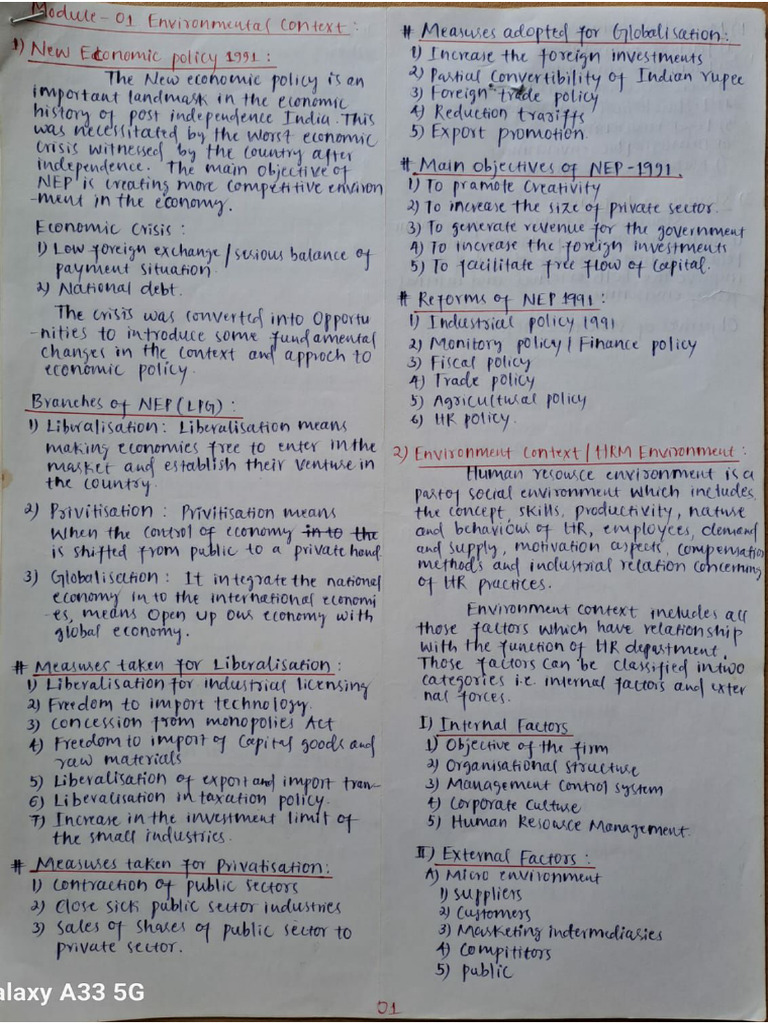 Module-01 Environmental Context:
1) New Economic policy 1991:
The New economic policy is an
important landmask in the economic
history of post independence India. This
was necessitated by the worst economic
crisis witnessed by the country after
independence. The main objective of
NEP is creating more competitive environ
-ment in the economy.
Economic Crisis:
1) Low foreign exchange / serious balance of
payment situation
2) National debt.
The crisis was converted into opportu
-nities to introduce some fundamental
changes in the context and approch to
economic policy.
Branches of NEP (LPG):
1) Libralisation: Liberalisation means
making economies free to enter in the
market and establish their venture in
the country.
2) Privitisation: Privitisation means
when the control of economy in to the
is shifted from public to a private hand
3) Globalisation: It integrate the national
economy in to the international economi
-es, means open up our economy with
global economy.
# Measures taken for Liberalisation:
1) Liberalisation for industrial licensing
2) Freedom to import technology.
3) Concession from monopolies Act
4) Freedom to import of Capital goods and
raw materials
5) Liberalisation of export and import tran-
6) Liberalisation in taxation policy.
7) Increase in the investment limit of
the small industries.
# Measures taken for Privatisation:
1) Contraction of public sectors
2) Close sick public sector industries
3) Sales of Shares of public sector to
private sector.
alaxy A33 5G
# Measures adopted for Globalisation:
1) Increase the foreign investments
2) Partial convertibility of Indian rupee
3) Foreign trade policy
4) Reduction trariffs
5) Export promotion
# Main objectives of NEP-1991.
1) To pramote Creativity
2) To increase the size of private sector.
3) To generate revenue for the government
4) To increase the foreign investments
5) To facilitate free flow of Capital.
# Reforms of NEP 1991:
1) Industrial policy 1991
2) Monitory policy / Finance policy
3) Fiscal policy
4) Trade policy
5) Agricultural policy
6) HR policy.
2) Environment Context / HRM Environment:
Human resource environment is a
part of social environment which includes
the concept, skills, productivity, nature
and behavious of HR, employees, demand
and supply, motivation aspects, compensation
methods and industrial relation concerning
of HR practices.
Environment context includes all
those factors which have relationship
with the function of HR department.
Those factors can be classified in two
categories i.e. internal factors and exter
nal forces.
I) Internal Factors
1) Objective of the firm
2) Organisational structure
3) Management control system
4) Corporate Culture
5) Human Resource Management.
II) External Factors:
A) Micro environment
1) Suppliers
2) Customers
3) Marketing indermediasies
4) Compititors
5) public
01